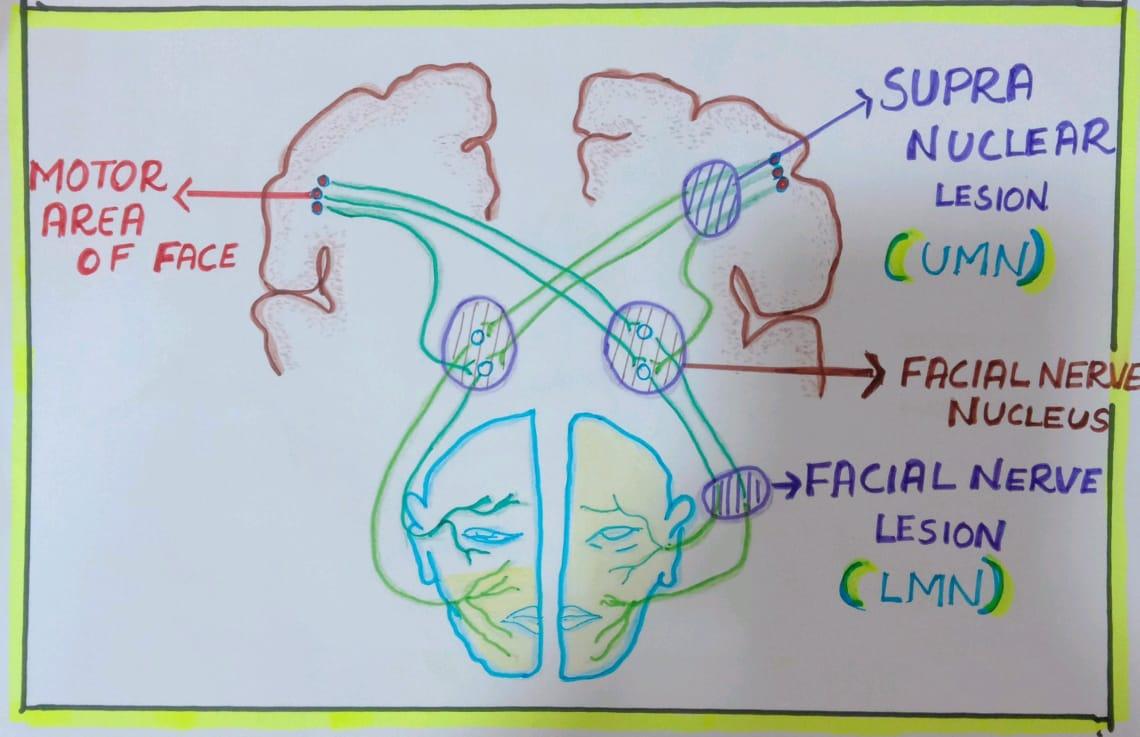 MOTOR
AREA
OF FACE
SUPRA
NUCLEAR
LESION
(UMN)
FACIAL NERVE
NUCLEUS
FACIAL NERVE
LESION
(LMN)